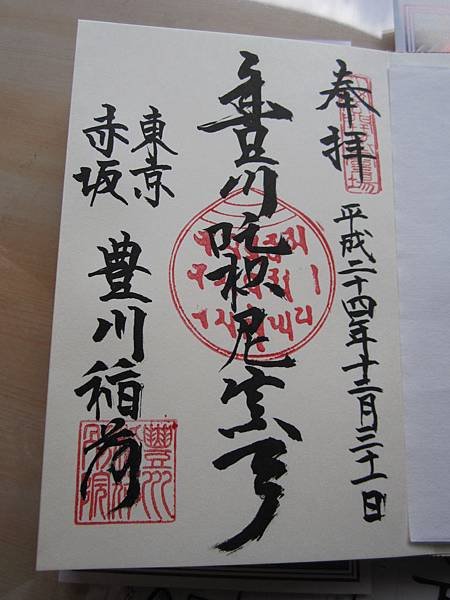 奉拝
平成二十四年十二月二十一日
豊川吒枳尼真天
東京
赤坂
豊川稲荷